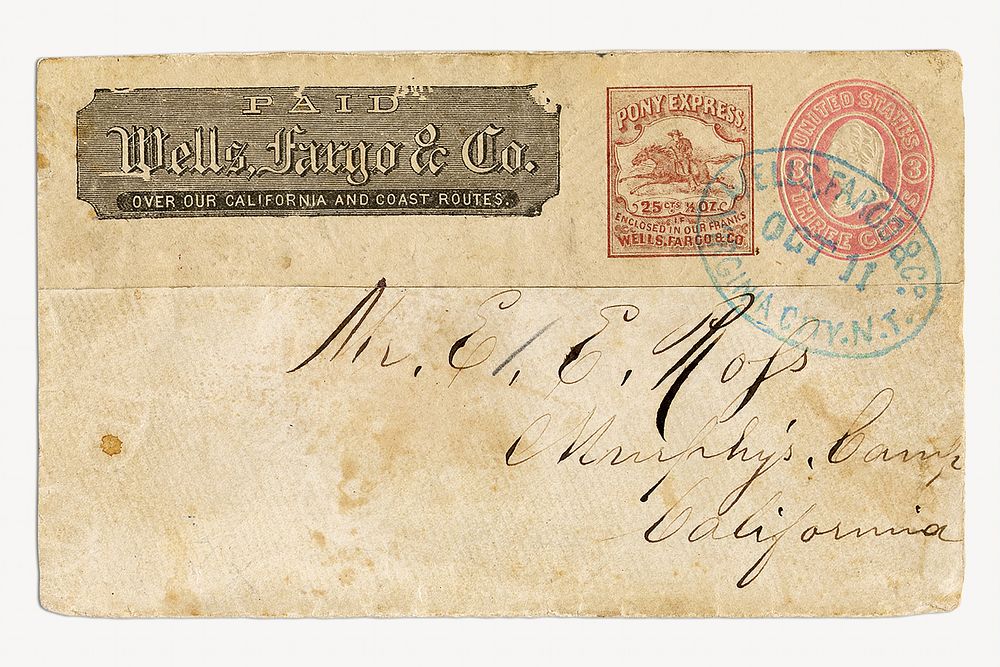 PAID
Wells, Fargo & Co.
OVER OUR CALIFORNIA AND COAST ROUTES.
PONY EXPRESS.
25 CTS ½ OZ.
IF
ENCLOSED IN OUR FRANKS
WELLS, FARGO & CO.
UNITED STATES
3 3
THREE CENTS
WELLS, FARGO & CO.
OCT 11
VIRGINIA CITY. N.T.
Mr. E. E. Ross
Murphy's, Camp
California